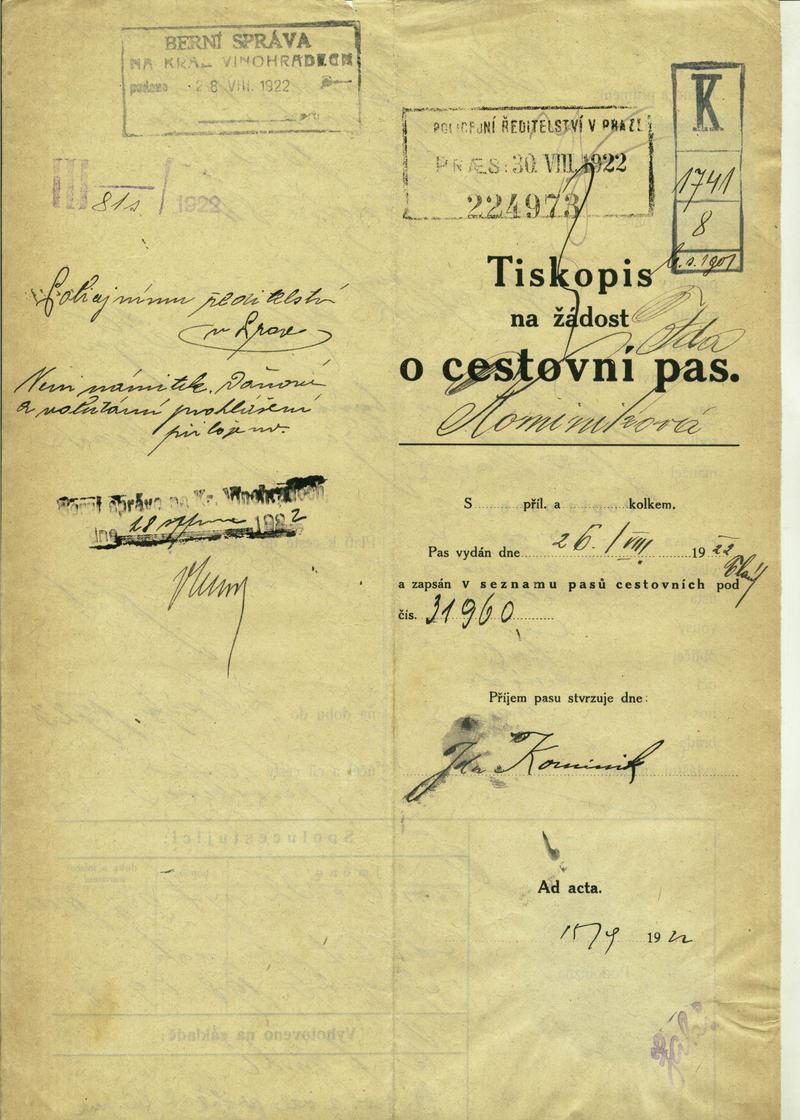 BERNÍ SPRÁVA
NA KRÁL. VINOHRADECH
podáno 28 VIII. 1922
III 81s / 1922
Policejnímu ředitelství
v Praze
Není námitek. Daňové
a valutární prohlášení
připojeno.
Berní správa na Kr. Vinohradech
dne 28 srpna 1922
POLICEJNÍ ŘEDITELSTVÍ V PRAZE
PRÆS: 30. VIII. 1922
224973
K
1741
8
Tiskopis
na žádost
o cestovní pas.
Ida
Kominiková
S příl. a kolkem.
Pas vydán dne 26. / VIII 1922
a zapsán v seznamu pasů cestovních pod
čís. 31960
Příjem pasu stvrzuje dne:
Ida Kominik
Ad acta.
15/9 1922
Spolucestující:
Vyhotoveno na základě: